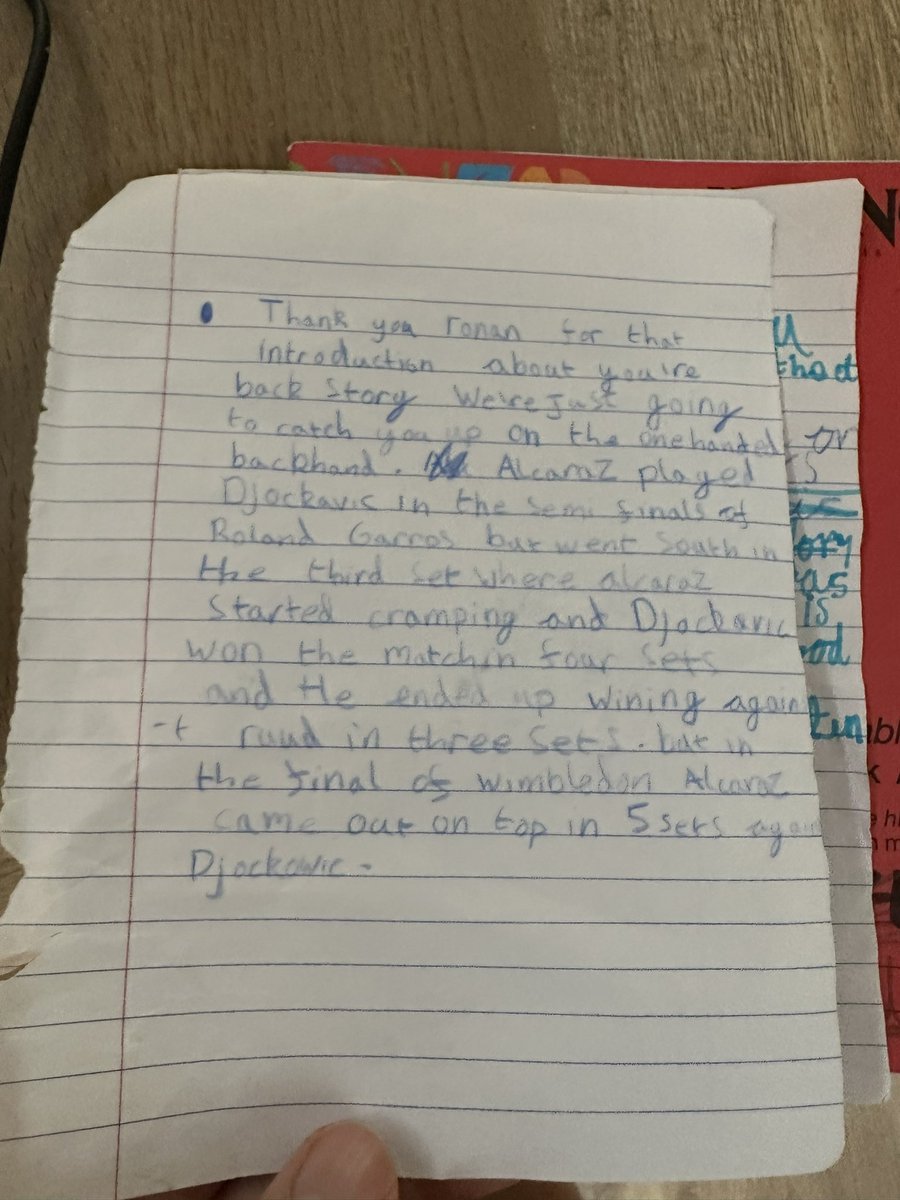 • Thank you ronan for that
introduction about you're
back story We're just going
to catch you up on the onehanted
backhand. Alcaraz played
Djockavic in the semi finals of
Roland Garros but went south in
the third set where alcaraz
started cramping and Djockavic
won the match in four sets
and He ended up wining again
-t ruud in three sets. but in
the final of wimbledon Alcaraz
came out on top in 5 sets agai
Djockovic -
u
that
or
s
ory
as
is
ood
tin
N